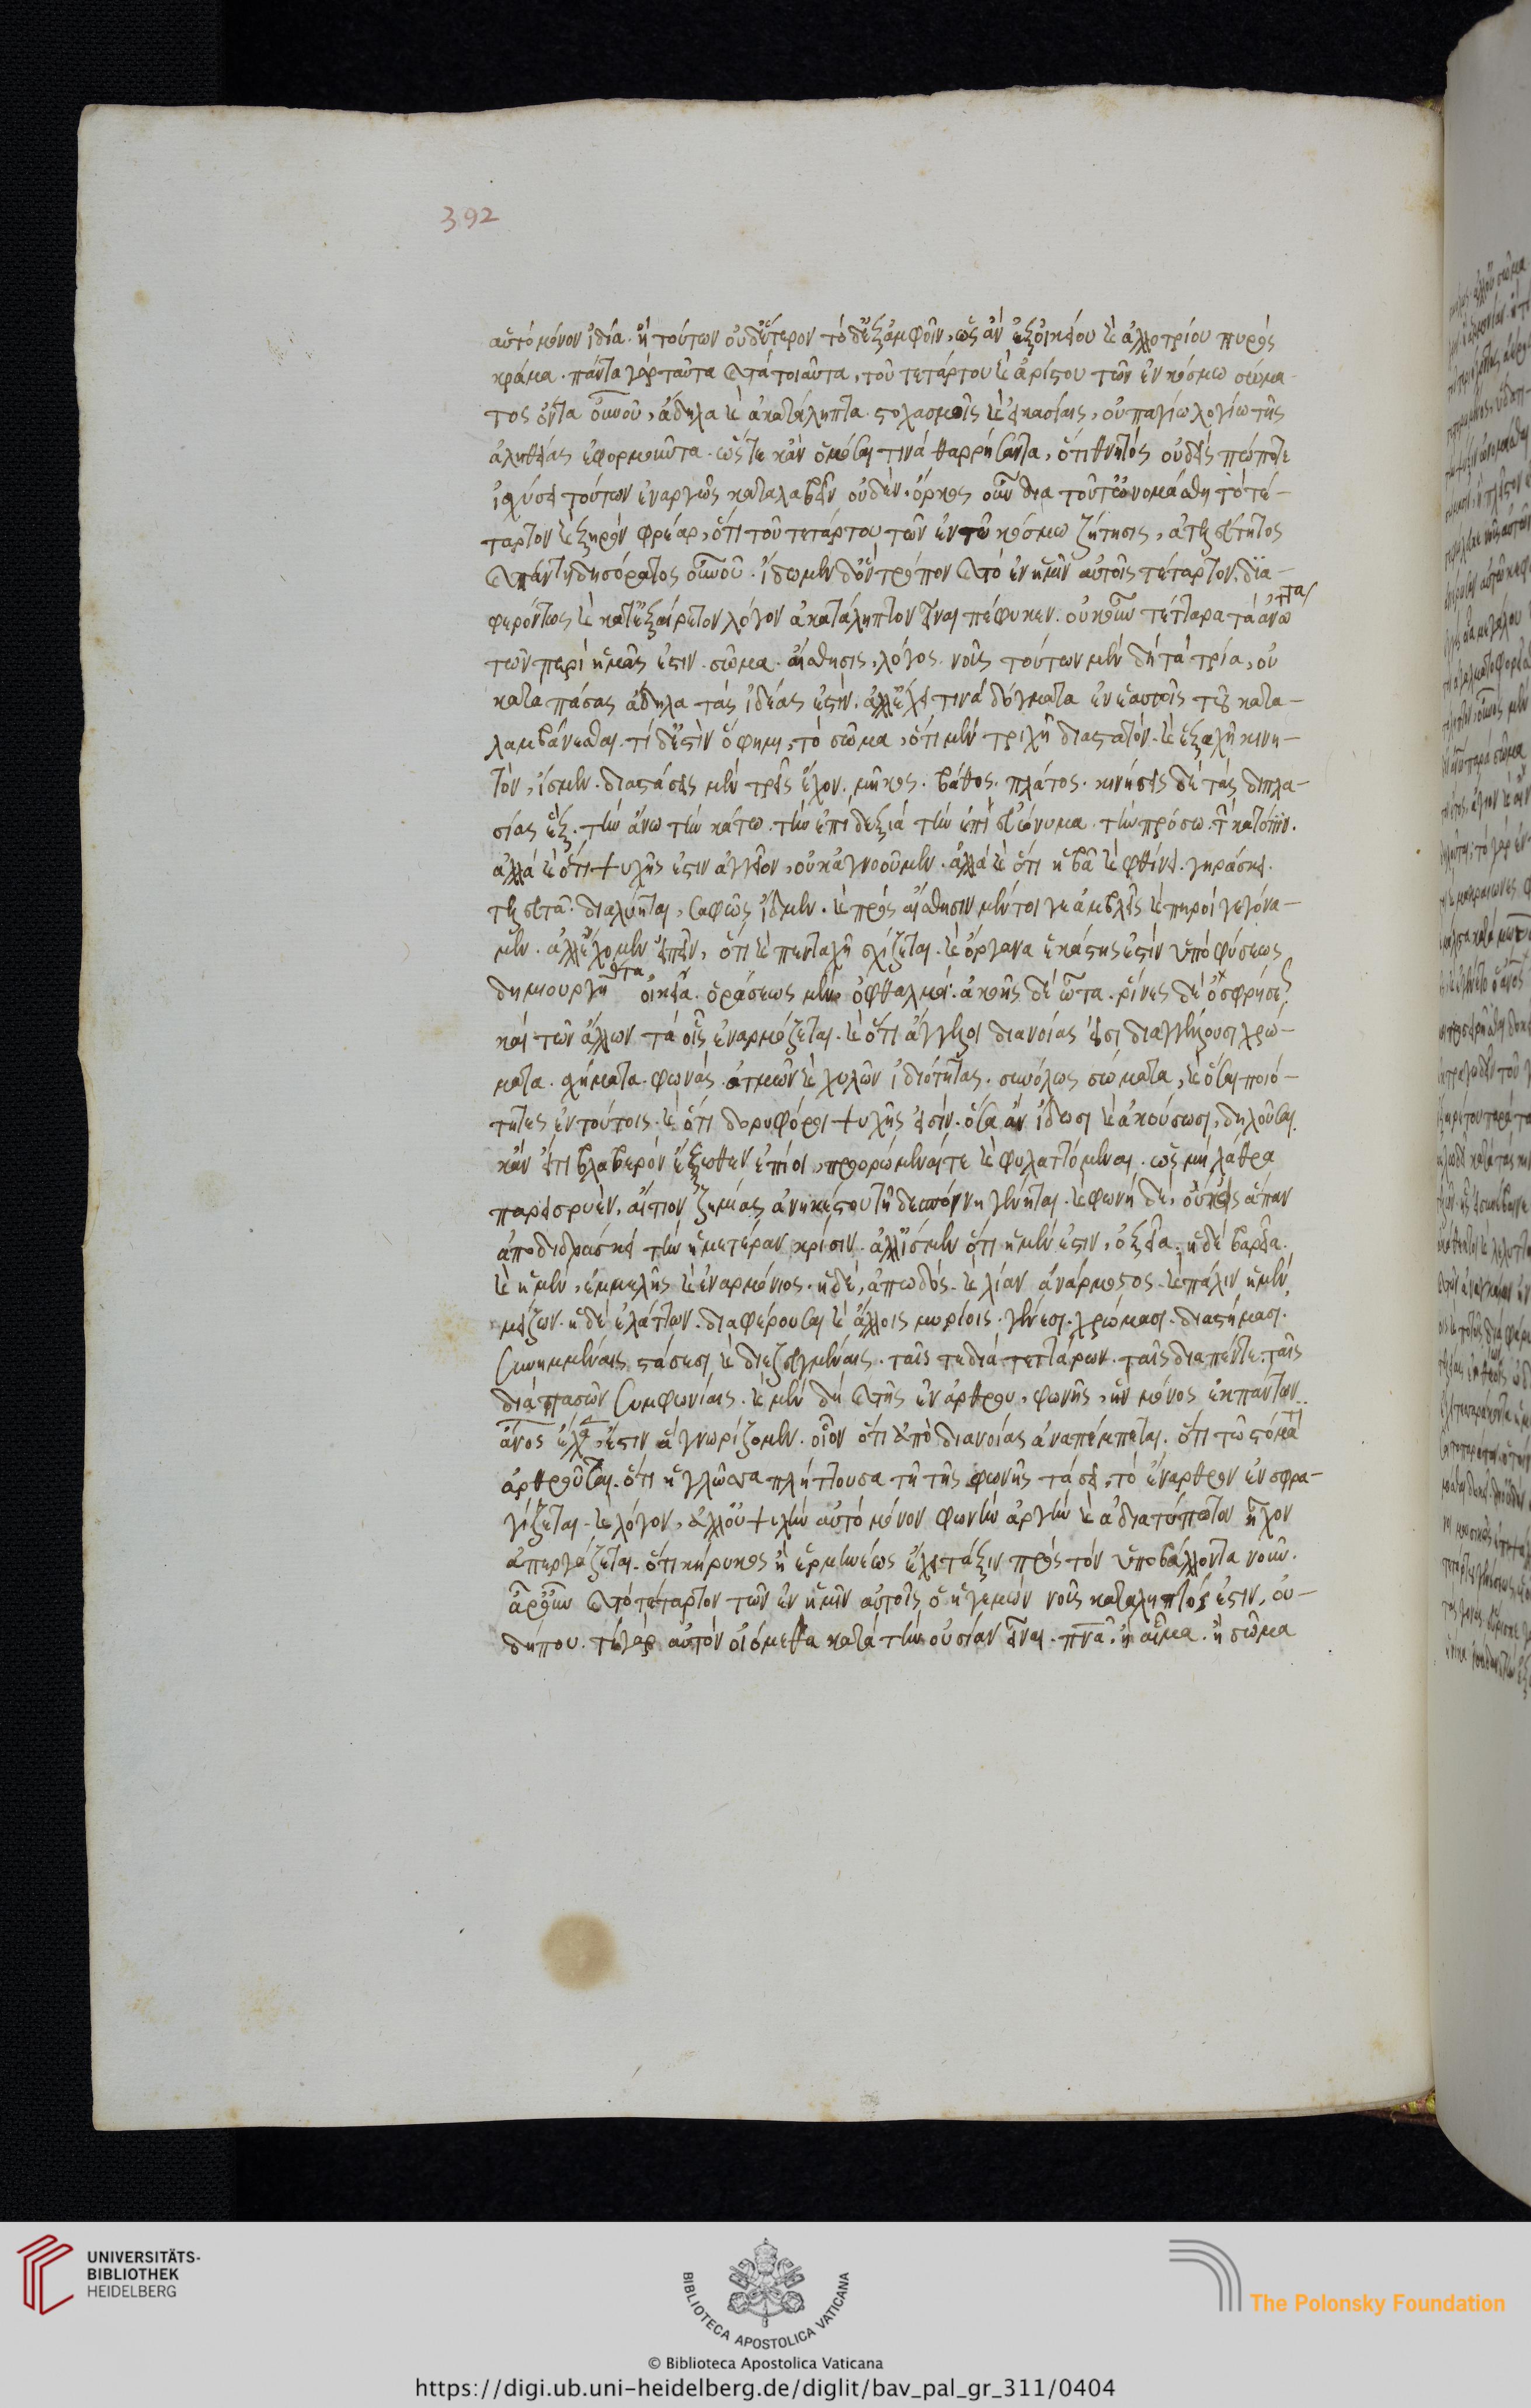 αὐτὸ μόνον ἰδία. ἢ τούτων οὐδέτερον τὸ δ' ἐξ ἀμφοῖν, ὡς ἂν ἐξ οἰκείου καὶ ἀλλοτρίου πυρὸς
κράμα. πάντα γὰρ ταῦτα καὶ τὰ τοιαῦτα, τοῦ τετάρτου καὶ ἀρίστου τῶν ἐν κόσμω σώμα-
τος ὄντα οὐνοῦ, ἄδηλα καὶ ἀκατάληπτα. στοχασμοῖς καὶ εἰκασίαις, οὐ παγίω λογίω τῆς
ἀληθείας ἐφορμοῦντα. ὥστε κἂν ὀμόσαι τινὰ θαρρήσαντα, ὅτι θνητὸς οὐδεὶς πώποτε
ἰσχύσει τούτων ἐναργῶς καταλαβεῖν οὐδέν. ὅρκος οὖν δια τοῦτ' ὠνομάσθη τὸ τέ-
ταρτον καὶ ξηρὸν φρέαρ, ὅτι τοῦ τετάρτου τῶν ἐν τῶ κόσμω ζήτησις, ἀτελεύτητος
καὶ πάντη δυσόρατος οὐνοῦ. ἴδωμεν δ' ὃν τρόπον καὶ τὸ ἐν ἡμῖν αὐτοῖς τέταρτον, δια-
φερόντως καὶ κατ' ἐξαίρετον λόγον ἀκατάληπτον εἶναι πέφυκεν. οὐκοῦν τέτταρα τὰ ἀνωτάτω
τῶν περὶ ἡμᾶς ἐστιν. σῶμα. αἴσθησις, λόγος. νοῦς τούτων μὲν δὴ τὰ τρία, οὐ
κατα πάσας ἄδηλα τὰς ἰδέας ἐστίν. ἀλλ' ἔχει τινὰ δείγματα ἐν ἑαυτοῖς τοῦ κατα-
λαμβάνεσθαι. τί δ' ἐστὶν ὅ φημι, τὸ σῶμα, ὅτι μὲν τριχῆ διαστατόν. καὶ ἑξαχῆ κινη-
τόν, ἴσμεν. διαστάσεις μὲν τρεῖς ἔχον. μῆκος. βάθος. πλάτος. κινήσεις δὲ τὰς διπλα-
σίας ἕξ. τὴν ἄνω τὴν κάτω. τὴν ἐπὶ δεξιὰ τὴν ἐπ' εὐώνυμα. τὴν πρόσω. τὴν κατόπιν.
ἀλλὰ καὶ ὅτι ψυχῆς ἐστιν ἀγγεῖον, οὐκ ἀγνοοῦμεν. ἀλλὰ καὶ ὅτι ἡβᾶ καὶ φθίνει. γηράσκει.
τελευτᾶ. διαλύεται, σαφῶς ἴσμεν. καὶ πρὸς αἴσθησιν μέντοι γε ἀμβλεῖς καὶ πηροὶ γεγόνα-
μεν. ἀλλ' ἔχομεν εἰπεῖν, ὅτι καὶ πενταχῆ σχίζεται. καὶ ὄργανα ἑκάστης ἐστὶν ὑπὸ φύσεως
δημιουργηθέντα οἰκεῖα. ὁράσεως μὲν ὀφθαλμοί. ἀκοῆς δὲ ὦτα. ῥῖνες δὲ ὀσφρήσεως
καὶ τῶν ἄλλων τὰ οἷς ἐναρμόζεται. καὶ ὅτι ἄγγελοι διανοίας εἰσὶ διαγγέλουσι χρώ-
ματα. σχήματα. φωνάς. ἀτμῶν καὶ χυλῶν ἰδιότητας. συνόλως σώματα, καὶ ὅσαι ποιό-
τητες ἐν τούτοις. καὶ ὅτι δορυφόροι ψυχῆς εἰσίν. ὅσα ἂν ἴδωσι καὶ ἀκούσωσι, δηλοῦσαι.
κἂν εἴ τι βλαβερὸν ἔξωθεν ἐπίοι, προορώμεναί τε καὶ φυλαττόμεναι. ὡς μὴ λάθρα
παρεισρυὲν, αἴτιον ζημίας ἀνηκέστου τῆ δεσποίνη γένηται. καὶ φωνὴ δὲ, οὐκ εἰς ἅπαν
ἀποδιδράσκει τὴν ἡμετέραν κρίσιν. ἀλλ' ἴσμεν ὅτι ἡ μέν ἐστιν, ὀξεῖα. ἡ δὲ βαρεῖα.
καὶ ἡ μὲν, ἐμμελὴς καὶ ἐναρμόνιος. ἡ δὲ, ἀπωδός. καὶ λίαν ἀνάρμοστος. καὶ πάλιν ἡ μὲν,
μείζων. ἡ δὲ ἐλάττων. διαφέρουσαι καὶ ἄλλοις μυρίοις. γένεσι. χρώμασι. διαστήμασι.
συνημμέναις στάσεσι καὶ διεζευγμέναις. ταῖς τε διὰ τεττάρων. ταῖς διαπέντε. ταῖς
διὰ πασῶν συμφωνίαις. καὶ μὲν δὴ καὶ τῆς ἐν ἄρθρου, φωνῆς, ἣν μόνος ἐκ πάντων
ἄνος ἔλαχεν, ἔστιν ἃ γνωρίζομεν. οἷον ὅτι ἀπὸ διανοίας ἀναπέμπεται. ὅτι τῶ στόματι
ἀρθροῦται. ὅτι ἡ γλῶσσα πλήττουσα τῆ τῆς φωνῆς τάσει, τὸ ἔναρθρον ἐνσφρα-
γίζεται. καὶ λόγον, ἀλλ' οὐ ψιλὴν αὐτὸ μόνον φωνὴν ἀργὴν καὶ ἀδιατύπωτον ἦχον
ἀπεργάζεται. ὅτι κήρυκος ἢ ἑρμηνέως ἔχει τάξιν πρὸς τὸν ὑποβάλλοντα νοῦν.
ἆρ' οὖν καὶ τὸ τέταρτον τῶν ἐν ἡμῖν αὐτοῖς ὁ ἡγεμὼν νοῦς καταληπτός ἐστιν, οὐ-
δήπου. τί γὰρ αὐτὸν οἰόμεθα κατὰ τὴν οὐσίαν εἶναι. πνα. ἢ αἷμα. ἢ σῶμα
392
UNIVERSITÄTS-
BIBLIOTHEK
HEIDELBERG
BIBLIOTECA APOSTOLICA VATICANA
The Polonsky Foundation
© Biblioteca Apostolica Vaticana
https://digi.ub.uni-heidelberg.de/diglit/bav_pal_gr_311/0404